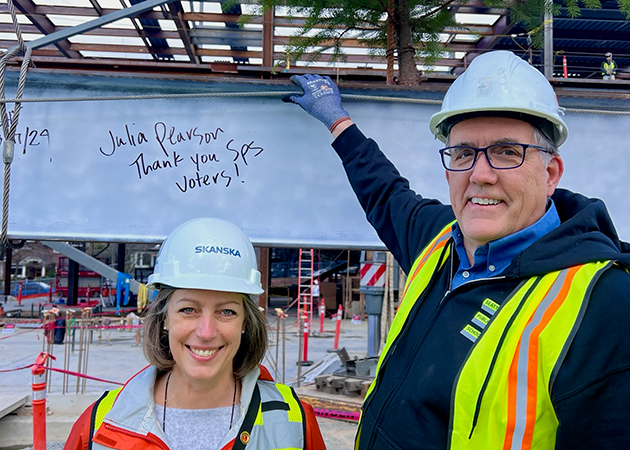 Julia Pearson
Thank you SPS
voters!
SKANSKA